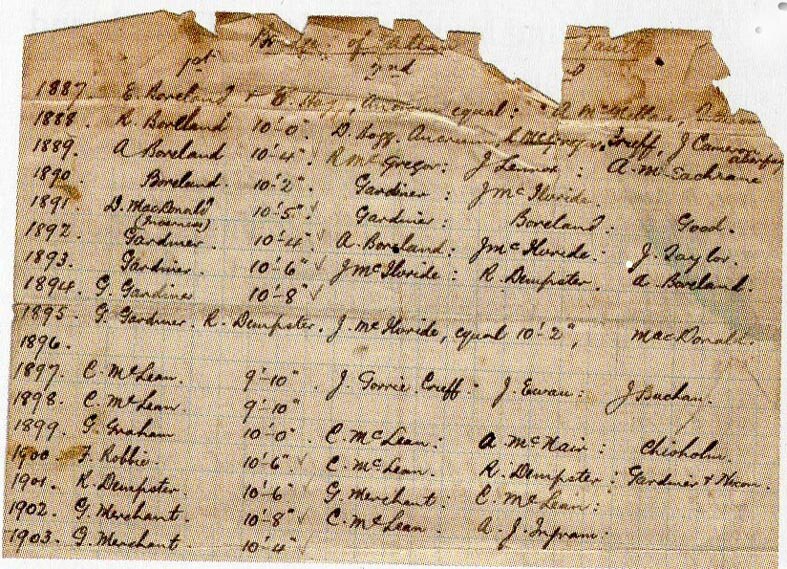 Bridge of Allan Vault
1st 2nd
1887. E. Boreland & D. Hogg, equal: A. McKellar,
1888. R. Boreland 10'-0" D. Hogg. Ancrum, R. McGregor, Crieff, J. Cameron
1889. A Boreland 10'-4" R McGregor: J Lennox: A. McEachrane
1890. Boreland. 10'-2" Gardiner: J McIlvride.
1891. D. MacDonald (Inverness) 10'-5" Gardiner: Boreland: Good.
1892. Gardiner. 10'-4" ✓ A. Boreland: J McIlvride: J. Taylor.
1893. Gardiner. 10'-6" ✓ J McIlvride: R. Dempster. A Boreland.
1894. G. Gardiner 10'-8" ✓
1895. G. Gardiner. R. Dempster. J. McIlvride, equal 10'-2", MacDonald.
1896.
1897. C. McLean. 9'-10" J. Gorrie. Crieff: J Ewan: J Buchan.
1898. C. McLean. 9'-10"
1899. G. Graham 10'-0" C. McLean: A. McNair: Chisholm.
1900 F. Robbie. 10'-6" ✓ C. McLean. R. Dempster: Gardiner &
1901. R. Dempster. 10'-6" G. Merchant: C. McLean:
1902. G. Merchant. 10'-8" ✓ C. McLean. A. J. Ingram:
1903. G. Merchant 10'-4" ✓